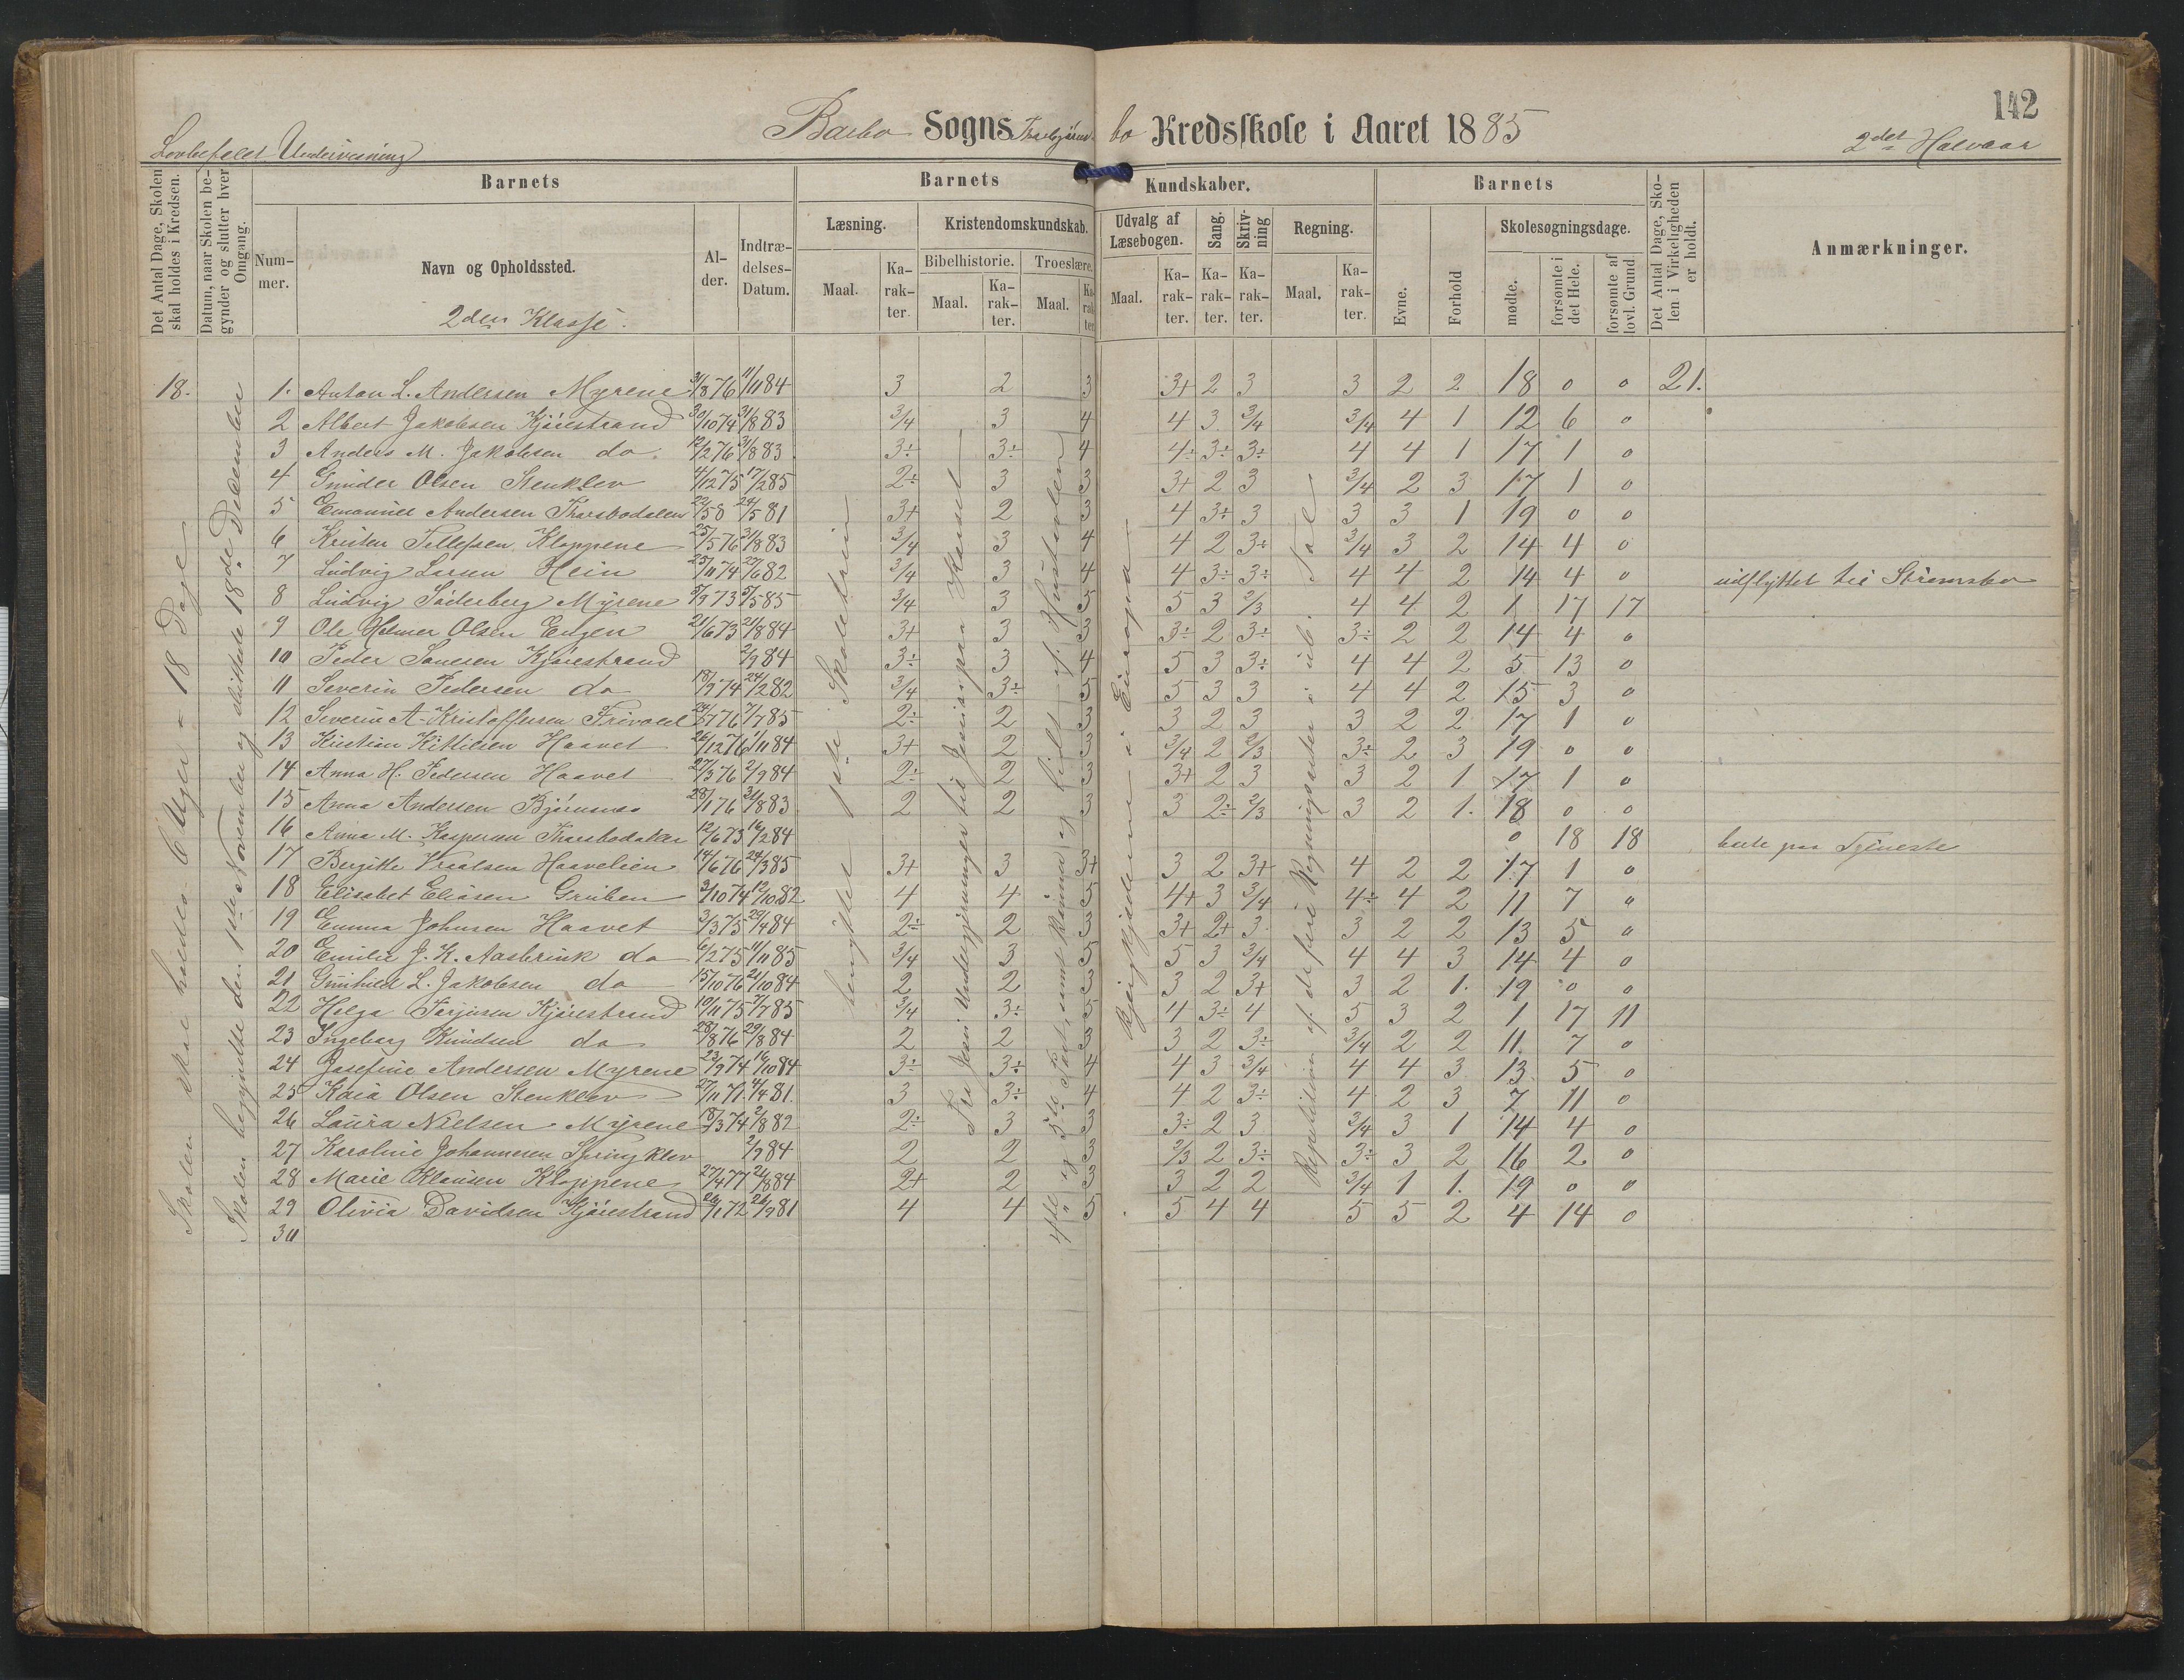 142
Barbo Sogns Thorbjørns- bo Kredsskole i Aaret 1885
Lovbefalet Undervisning
2det Halvaar
Det Antal Dage, Skolen skal holdes i Kredsen.
Datum, naar Skolen begynder og slutter hver Omgang.
Barnets
Barnets
Kundskaber.
Barnets
Det Antal Dage, Skolen i Virkeligheden er holdt.
Anmærkninger.
Num-mer.
Navn og Opholdssted.
Al-der.
Indtræ-delses-Datum.
Læsning.
Kristendomskundskab.
Udvalg af Læsebogen.
Sang.
Skriv-ning
Regning.
Evne.
Forhold
Skolesøgningsdage.
Bibelhistorie.
Troeslære.
Maal.
Ka-rak-ter.
Maal.
Ka-rak-ter.
Maal.
Ka-rak-ter
Maal.
Ka-rak-ter.
Ka-rak-ter.
Ka-rak-ter.
Maal.
Ka-rak-ter.
mødte.
forsømte i det Hele.
forsømte af lovl. Grund.
2den Klasse.
18. 1. Anton L. Andersen Myrene 31/8 76 11/11 84 3 2 3 3+ 2 3 3 2 2 18 0 0 21.
2 Albert Jakobsen Kjørestrand 30/10 74 31/8 83 3/4 3 4 4 3 3/4 3/4 4 1 12 6 0
3 Anders M. Jakobsen do. 12/2 76 31/8 83 3÷ 3÷ 4 4÷ 3÷ 3÷ 4 4 1 17 1 0
4 Gunder Olsen Stenklev 4/12 75 17/2 85 2÷ 3 3 3+ 2 3 3/4 2 3 17 1 0
5 Emanuel Andersen Tharsbodalen 24/5 81 3+ 2 3 4 3÷ 3 3 3 1 19 0 0
6 Kristen Tellefsen Kloppene 25/5 76 31/8 83 3/4 3 4 4 2 3÷ 3/4 3 2 14 4 0
7 Ludvig Larsen Hein 25/11 74 29/6 82 3/4 3 4 4 3÷ 3÷ 4 4 2 14 4 0 udflyttet til Strømsbo
8 Ludvig Søderberg Myrene 3/4 3 5 5 3 2/3 4 4 2 1 17 17
9 Ole Helmer Olsen Engen 21/6 73 21/8 84 3+ 3 3 3÷ 2 3÷ 3÷ 2 2 14 4 0
10 Peder Kjørestrand 2/9 84 3÷ 3 4 5 3 3÷ 4 4 2 5 13 0
11 Severin Pedersen do 18/9 74 24/2 82 3/4 3÷ 5 5 3 3 4 4 2 15 3 0
12 Severin A. Kristoffersen Frivold 7/7 85 2÷ 2 3 3 2 3 3 2 2 17 1 0
13 Kristian Kittilsen Haavet 26/12 76 1/11 84 3+ 2 3 3/4 2 2/3 3÷ 2 3 19 0 0
14 Anna H. Pedersen Haavet 27/3 76 2/9 84 2÷ 2 3 3+ 2 3 3 2 1 17 1 0
15 Anna Andersen Bjørnenes 28/1 76 31/8 83 2 2 3 3 2÷ 2/3 3 2 1. 18 0 0
16 Anna M. Kaspersen Tharsbodakken 12/6 73 16/2 84 0 18 18 borte paa Tjeneste
17 Bergitte Vraalsen Haavelien 14/6 76 24/3 85 3+ 3 3+ 3 2 3+ 4 2 2 17 1 0
18 Elisabet Eliasen Gruben 3/10 74 12/10 82 4 4 5 4+ 3 3/4 4÷ 4 2 11 7 "
19 Emma Johnsen Haavet 3/3 75 29/4 84 2÷ 2 3 3+ 2+ 3 3 2 2 13 5 "
20 Emilie J. K. Aasbrink do 6/2 75 11/11 85 3/4 3 5 5 3 3/4 4 4 3 14 4 0
21 Gunhild L. Jakobsen do 15/10 76 21/10 84 2 2 3 3 2 3+ 3 2 1. 19 0 0
22 Helga Terjesen Kjørestrand 10/11 75 7/7 85 3/4 3÷ 5 4 3÷ 4 5 3 2 1 17 11
23 Ingeborg Knudsen do 28/8 76 29/8 84 2 2 3 3 2 3÷ 3/4 2 2 11 7 0
24 Josefine Andersen Myrene 23/9 74 16/10 84 3÷ 3÷ 4 4 3 3/4 4 4 3 13 5 0
25 Kaia Olsen Stenklev 27/11 71 4/4 81. 3 3÷ 4 4 2 3÷ 4 2 3 7 11 0
26 Laura Nielsen Myrene 18/3 74 2/8 82 2÷ 3 3 3÷ 2 3 3/4 3 1 14 4 0
27 Karoline Johannesen Springklev 2/9 84 2 2 3 2/3 2 3÷ 3÷ 3 2 16 2 0
28 Marie Klausen Kloppene 27/4 77 21/8 84 2+ 2 3 3 2 2 3/4 1 1. 19 0 0
29 Olivia Davidsen Kjørestrand 26/1 72 26/9 81 4 4 5 5 4 4 5 5 2 4 14 0
30
Skolen skal holdes 6 Uger = 18 Dage
Skolen begyndte den 1ste November og sluttede 18de December
benyttet 1ste Skoletrin
Fra Jesu Undergjerninger til Jesus paa Korset
4de og 5te Part, samt Rømmed og lidt af Hustavlen
Bjergkjæderne i Europa
Repetition af de fire Regningsarter i ub. Tal